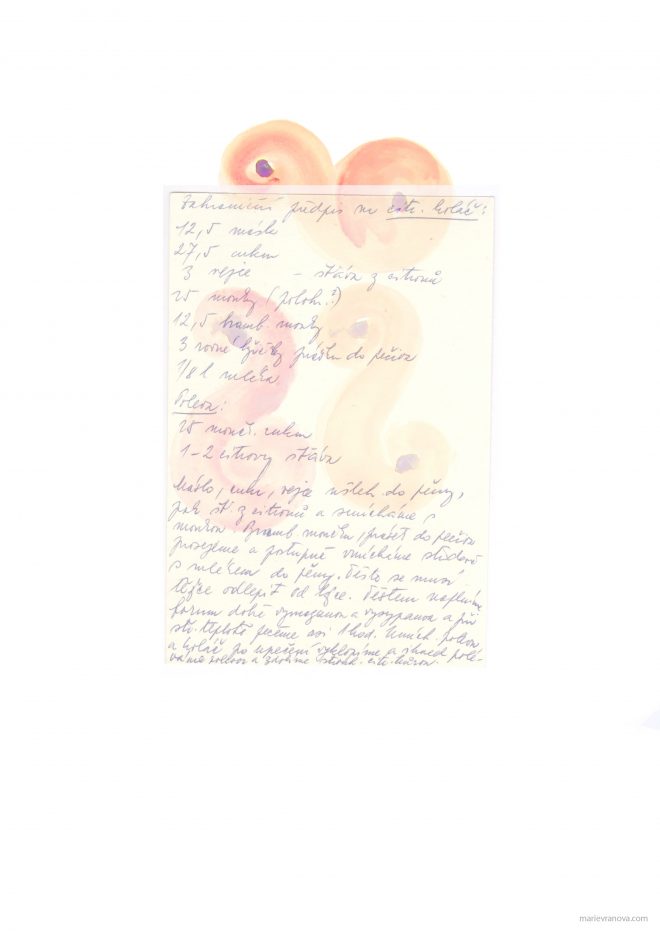 Zahraniční předpis na citr. koláč:
12,5 másla
27,5 cukru
3 vejce - šťáva z citronů
25 mouky (polohr.?)
12,5 bramb. mouky
3 rovné lžičky prášku do pečiva
1/8 l mléka
Poleva:
25 moučk. cukru
1-2 citrony šťáva
Máslo, cukr, vejce ušleh. do pěny,
pak šť. z citronů a smícháme s
moukou. Bramb. moučku, prášek do pečiva
prosejeme a postupně vmícháme střídavě
s mlékem do pěny. Těsto se musí
těžce odlepit od lžíce. Těstem naplníme
formu dobře vymazanou a vysypanou a při
stř. teplotě pečeme asi 1 hod. Umích. polevu
a koláč po upečení vyklopíme a ihned polé-
váme polevou a zdobíme citr. kůrou.
marievranova.com